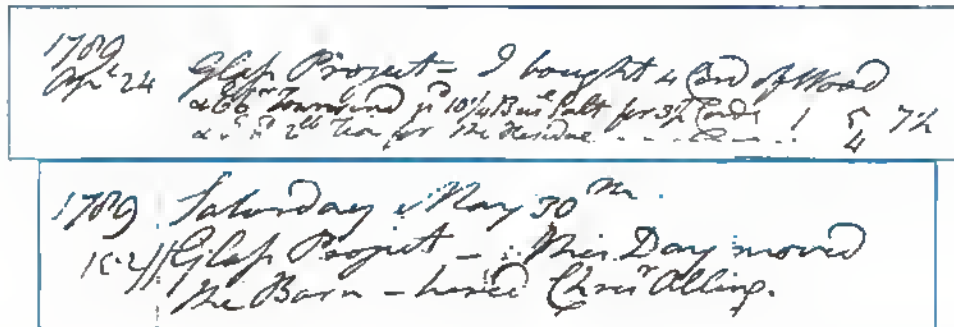 1789
Apl 24 Glass Project - I bought 4 Cord of Wood
Townsend pd 10¼ Bus Salt for 3½ Cords 1 5 7½
2lb Tea for the Residue - - - - 4
1789 Saturday May 30th
Glass Project - This Day moved
the Barn - hired Chrisr Alling.